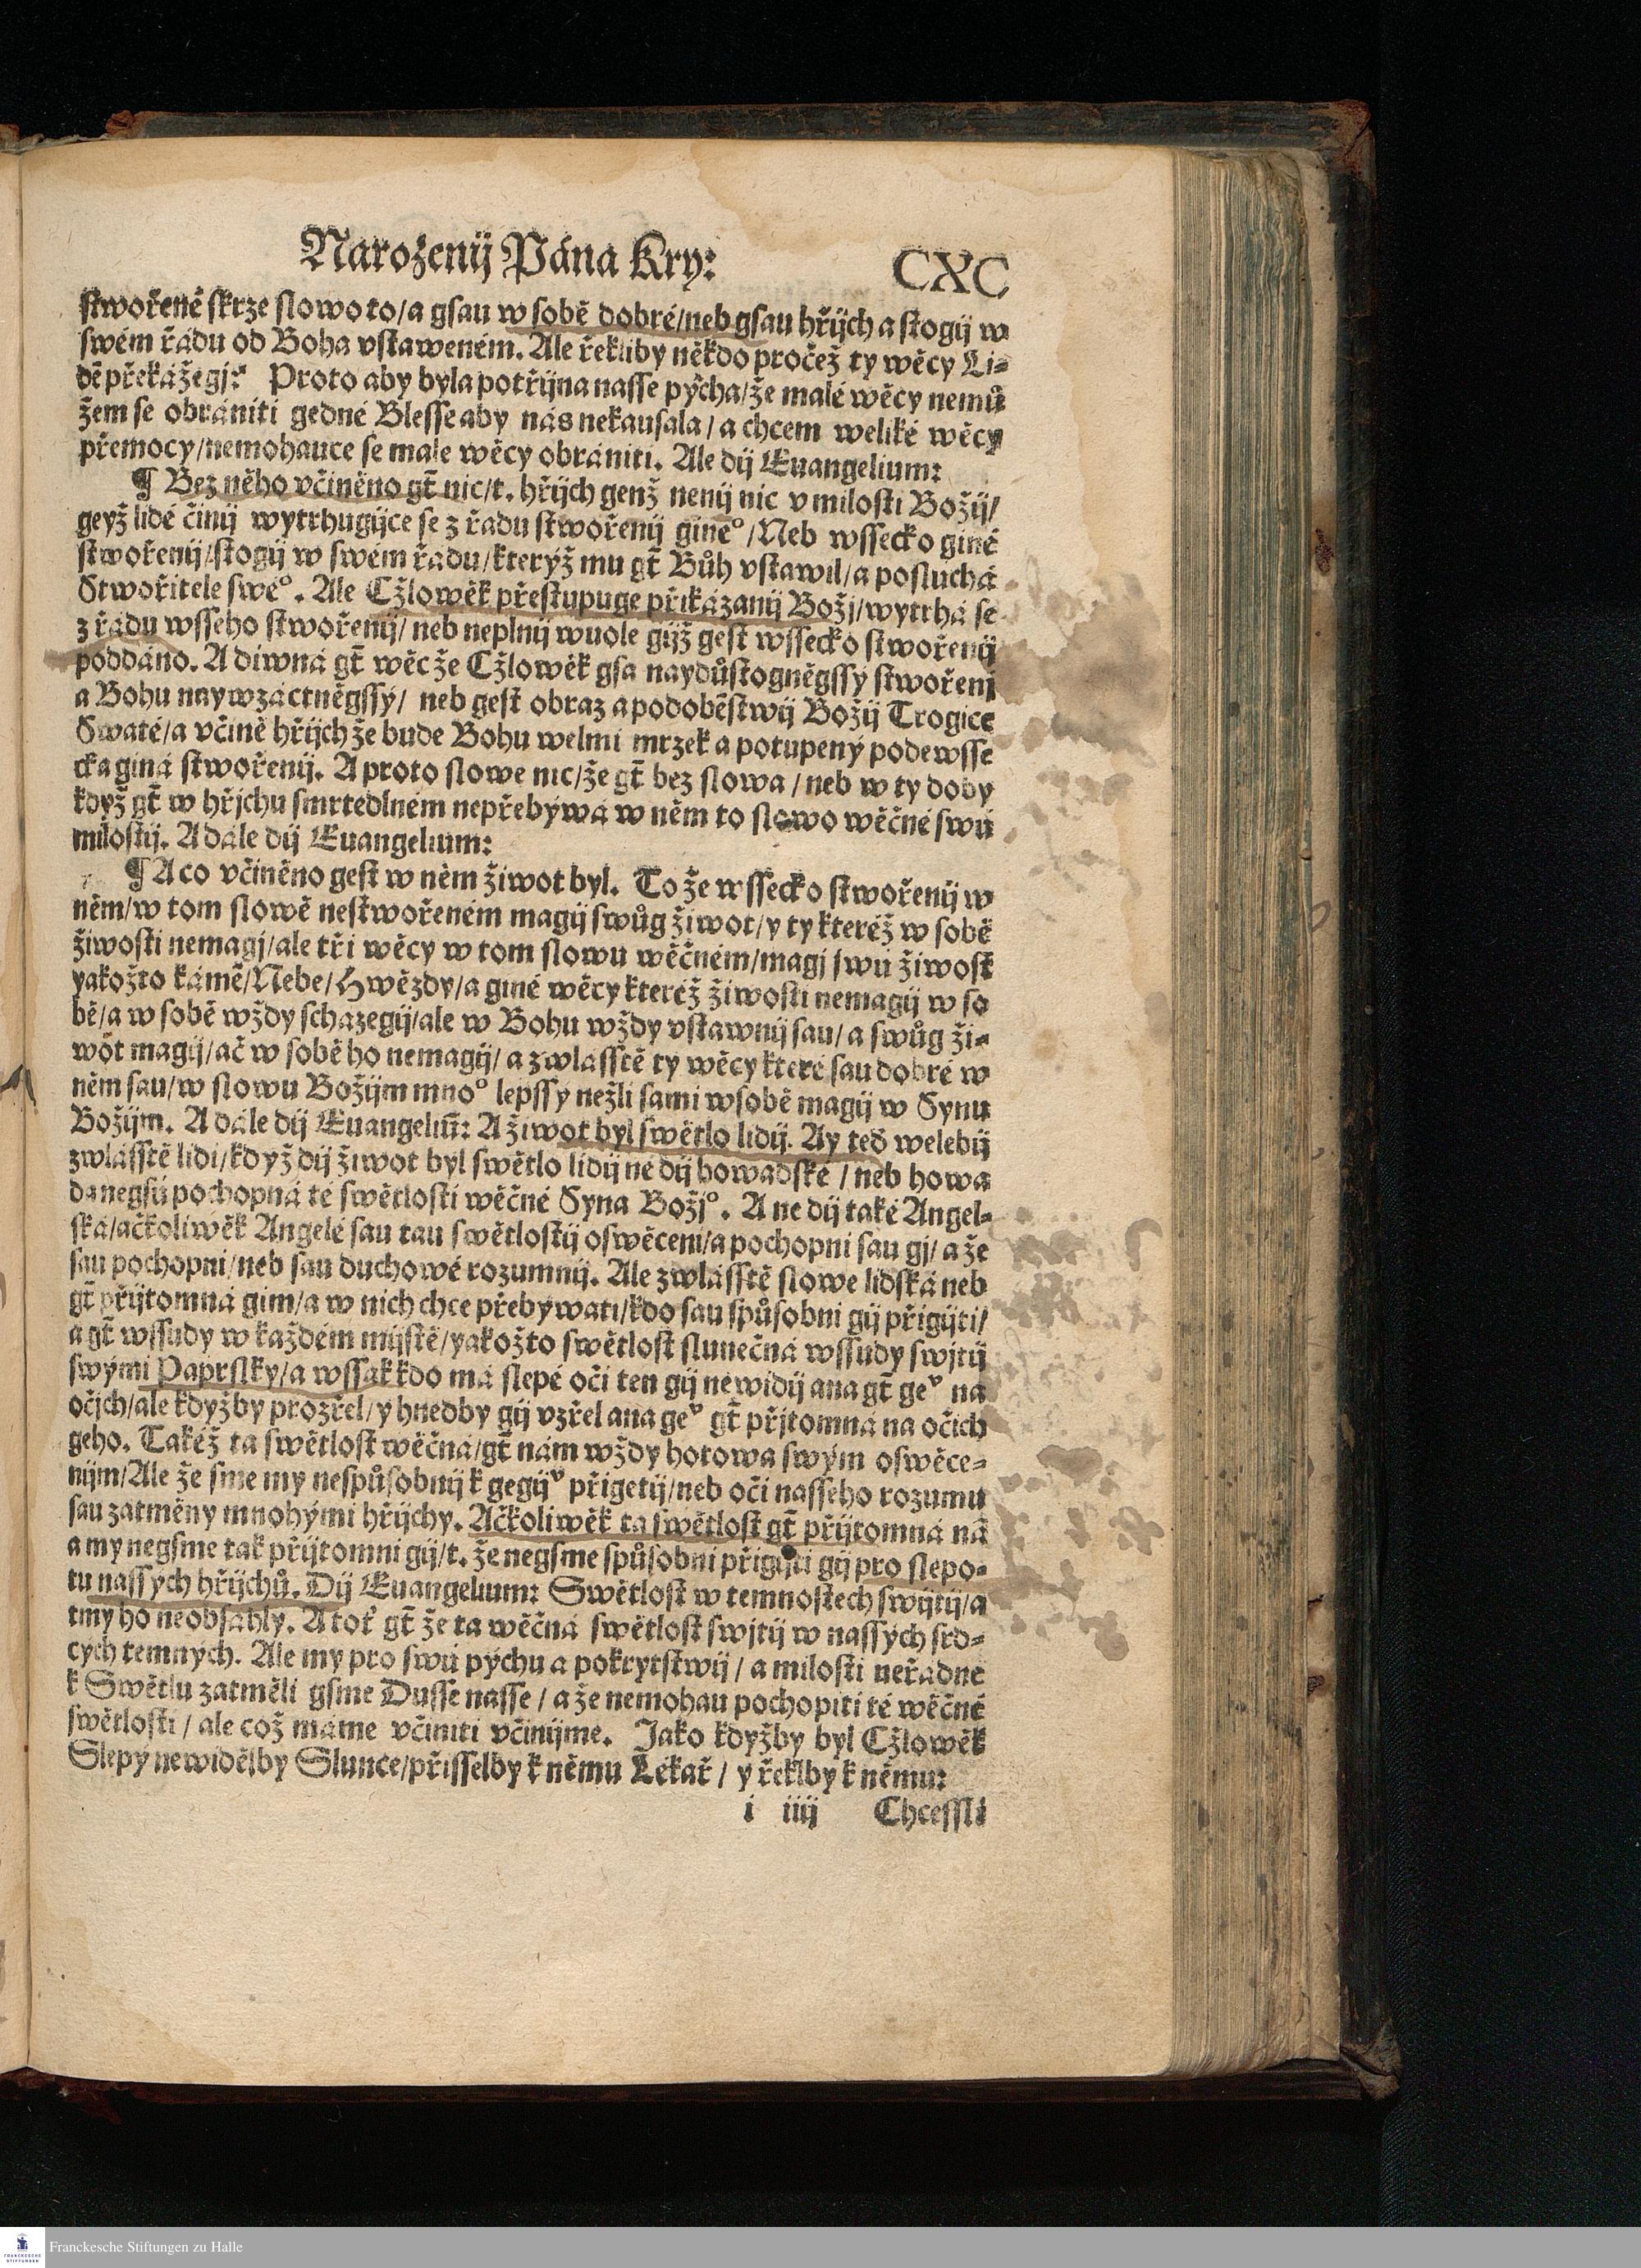 Narozenij Pána Kry:
CXC
stwořené skrze slowo to/a gsau w sobě dobré/neb gsau hřijch a stogij w
swém řádu od Boha vstaweném. Ale řekliby někdo pročež ty wěcy Li-
dě překážegj: Proto aby byla potřijna nasse pýcha/že malé wěcy nemů
žem se obrániti gedné Blesse aby nás nekausala / a chcem weliké wěcy
přemocy/nemohauce se male wěcy obrániti. Ale dij Euangelium:
¶ Bez něho včiněno gt̄ nic/t. hřijch genž nenij nic v milosti Božij/
geyž lidé činij wytrhugijce se z řádu stwořenij gineº /Neb wssecko giné
stwořenij/stogij w swém řádu/kterýž mu gt̄ Bůh vstawil/a poslucha
Stwořitele sweº. Ale Cžlowěk přestupuge přikázanij Božj/wytrhá se
z řádu wsseho stwořenij/ neb neplnij wuole gijž gest wssecko stwořenij
poddáno. A diwná gt̄ wěc že Cžlowěk gsa naydůstogněgssý stwořenj
a Bohu naywzáctněgssý/ neb gest obraz a podobēstwij Božij Trogice
Swaté/a včině hřijch že bude Bohu welmi mrzek a potupený pode wsse
cka giná stwořenij. A proto slowe nic/že gt̄ bez slowa / neb w ty doby
když gt̄ w hřjchu smrtedlném nepřebýwá w něm to slowo wěčné swú
milostij. A dále dij Euangelium:
¶ A co včiněno gest w něm žiwot byl. To že wssecko stwořenij w
něm/w tom slowě nestwořeném magij swůg žiwot/y ty kteréž w sobě
žiwosti nemagj/ale tři wěcy w tom slowu wěčném/magj swú žiwost
yakožto kámē/Nebe/Hwězdy/a giné wěcy kteréž žiwosti nemagij w so
bě/a w sobě wždy scházegij/ale w Bohu wždy vstawnij sau/ a swůg ži-
wōt magij/ač w sobě ho nemagij/ a zwlásstě ty wěcy které sau dobré w
něm sau/w slowu Božijm mnoº lepssý nežli sami w sobě magij w Synu
Božijm. A dále dij Euangeliū: A žiwot byl swětlo lidij. Ay teď welebij
zwlásstě lidi/když dij žiwot byl swětlo lidij ne dij howadské / neb howa
da negsú pochopná té swětlosti wěčné Syna Božjº. A ne dij také Angel-
ská/ačkoliwěk Angelé sau tau swětlostij oswěceni/a pochopni sau gj/ a že
sau pochopni/neb sau duchowé rozumnij. Ale zwlásstě slowe lidská neb
gt̄ přijtomná gim/a w nich chce přebýwati/kdo sau spůsobni gij přigijti/
a gt̄ wssudy w každém mijstě/yakožto swětlost slunečná wssudy swjtij
swými Paprslky/a wssak kdo má slepé oči ten gij newidij ana gt̄ geᵛ na
očjch/ale kdyžby prozřel/y hnedby gij vzřel ana geᵛ gt̄ přjtomná na očich
geho. Takéž ta swětlost wěčná/gt̄ nám wždy hotowa swým oswěce-
nijm/Ale že sme my nespůsobnij k gegijᵛ přigetij/neb oči nasseho rozumu
sau zatměny mnohými hřijchy. Ačkoliwěk ta swětlost gt̄ přijtomná nā
a my negsme tak přijtomni gij/t. že negsme spůsobni přigijti gij pro slepo-
tu nassých hřijchů. Dij Euangelium: Swětlost w temnostech swijtij/a
tmy ho neobsáhly. A toť gt̄ že ta wěčná swětlost swjtij w nassých srd-
cých temných. Ale my pro swú pýchu a pokrytstwij / a milosti neřádné
k Swětlu zatměli gsme Dusse nasse / a že nemohau pochopiti té wěčné
swětlosti / ale což máme včiniti včinijme. Jako kdyžby byl Cžlowěk
Slepý newidělby Slunce/přisselby k němu Lékař / y řeklby k němu:
i iiij Chcessli
Franckesche Stiftungen zu Halle